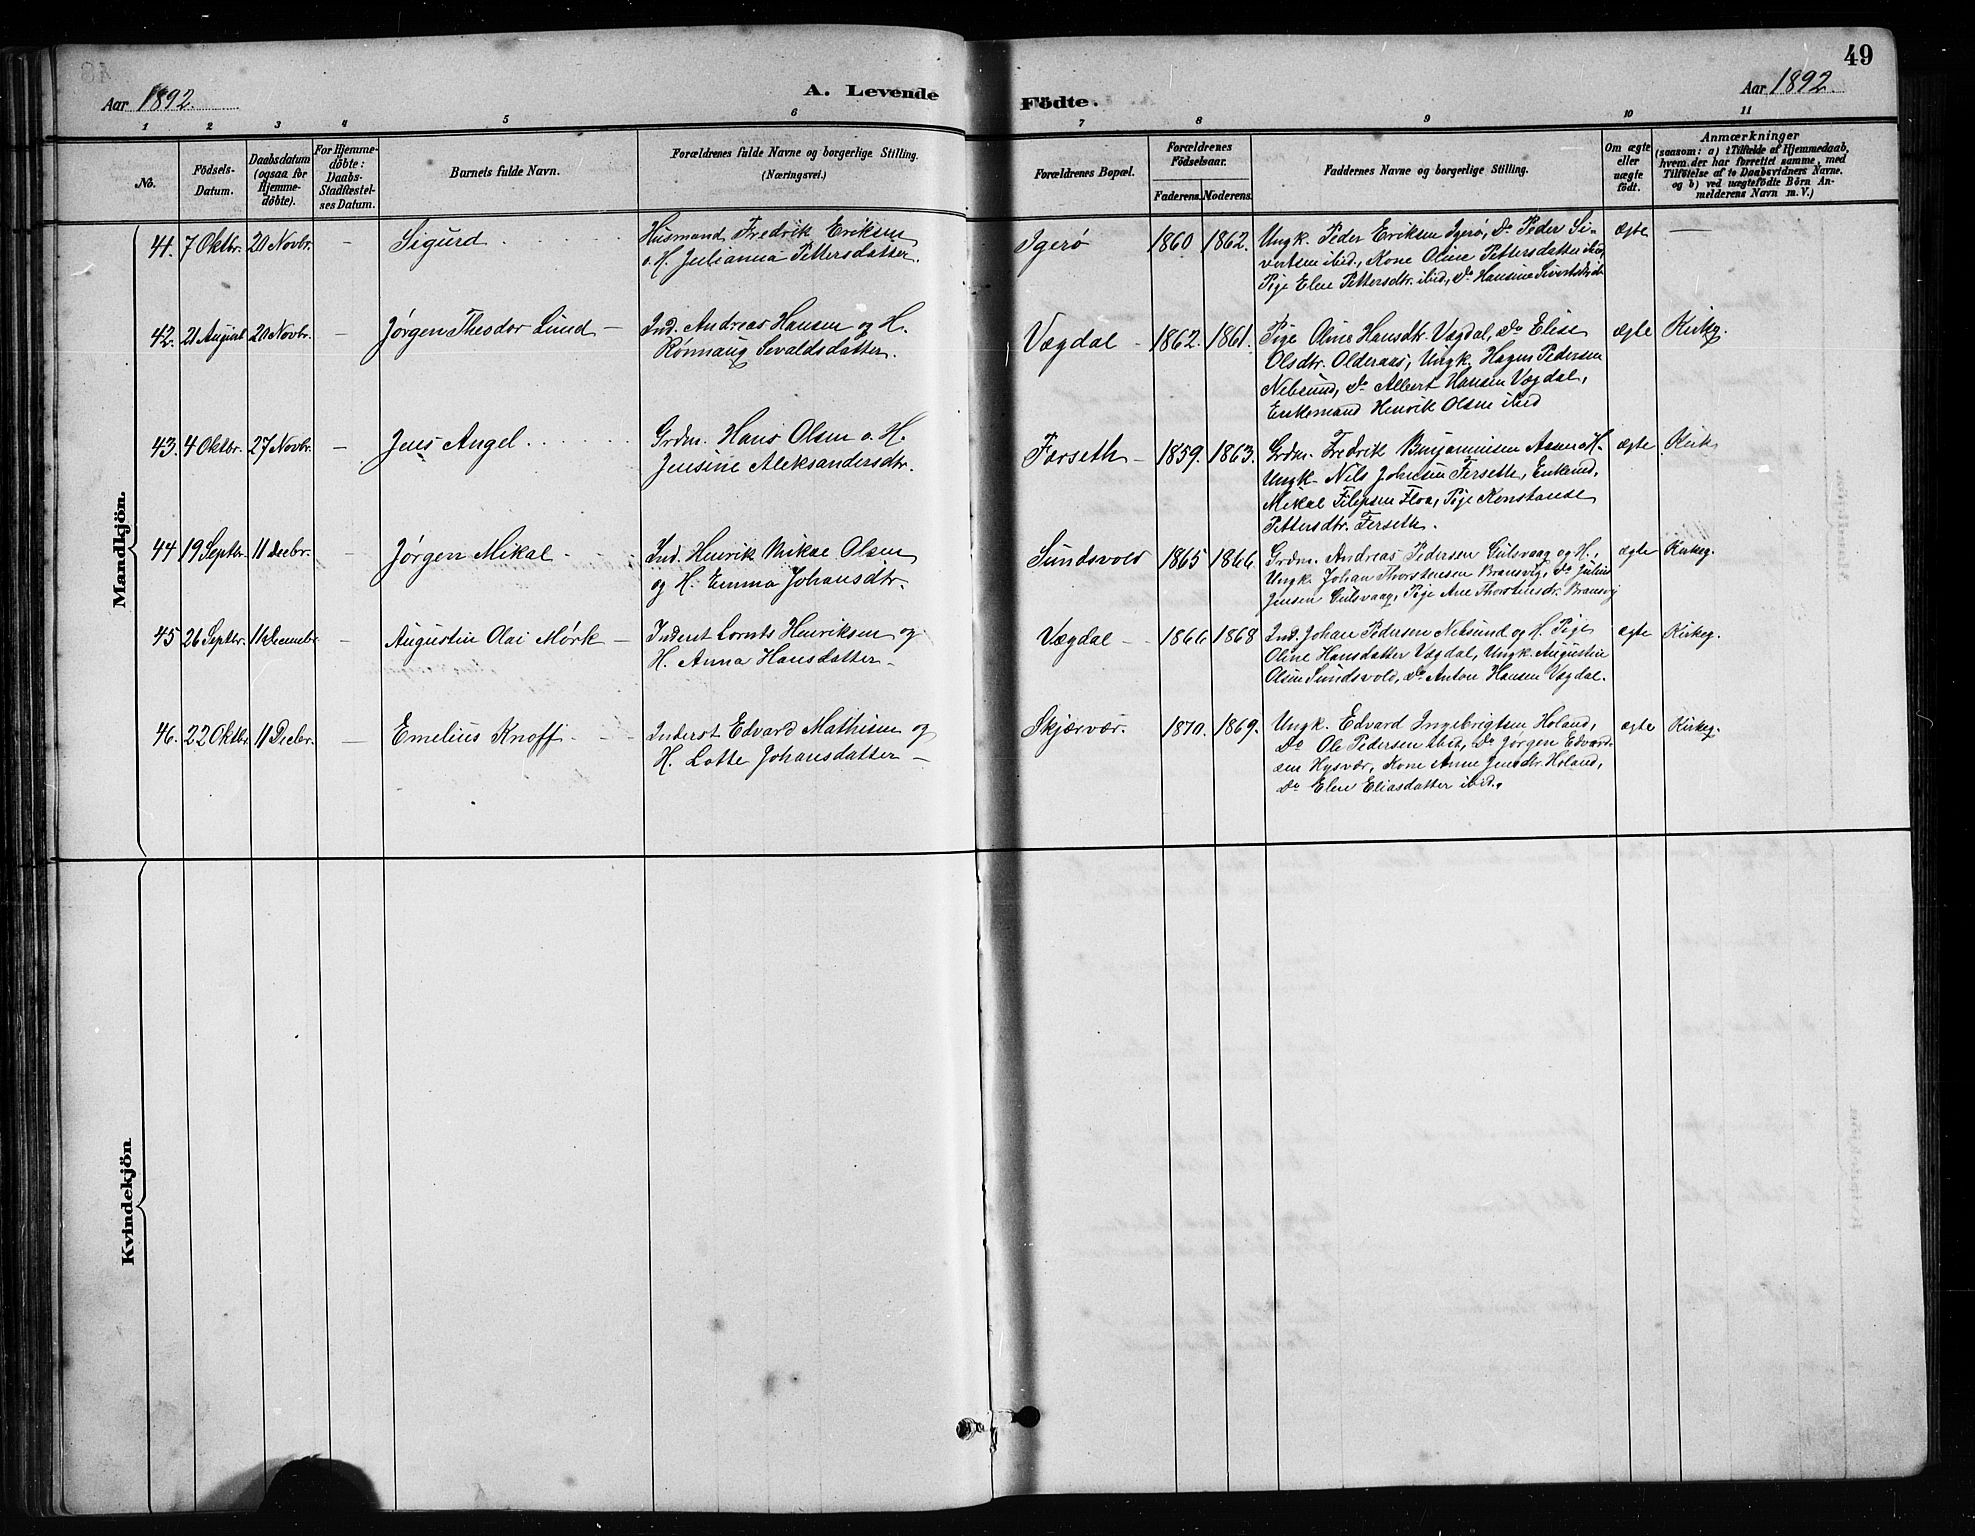 49
Aar 1892
A. Levende Födte.
Aar 1892.
1 2 3 4 5 6 7 8 9 10 11
No.
Födsels-
Datum.
Daabsdatum
(ogsaa for
Hjemme-
döbte).
For Hjemme-
döbte:
Daabs-
Stadfæstel-
ses Datum.
Barnets fulde Navn.
Forældrenes fulde Navne og borgerlige Stilling.
(Næringsvei.)
Forældrenes Bopæl.
Forældrenes
Födselsaar.
Faderens. Moderens.
Faddernes Navne og borgerlige Stilling.
Om ægte
eller
uægte
födt.
Anmærkninger
(saasom: a) i Tilfælde af Hjemmedaab,
hvem der har forrettet samme, med
Tilföielse af to Daabsvidners Navne,
og b) ved uægtefödte Börn An-
melderens Navn m. V.)
Mandkjön.
41. 7 Oktbr. 20 Novbr. — Sigurd
Husmand Fredrik Eriksen
o. H. Julianna Pettersdatter.
Igerø 1860 1862.
Ungk. Peder Eriksen Igerø, Do Peder Si-
vertsen ibid., Kone Oline Pettersdatter ibid,
Pige Elen Pettersdtr. ibid., Do Hansine
ægte —
42. 21 August 20 Novbr. — Jørgen Theodor Lund —
Ind. Andreas Hansen og H.
Rønnaug Sevaldsdatter.
Vægdal — 1862. 1861.
Pige Oline Hansdtr. Vægdal, Do Elise
Olsdtr. Olderaas, Ungk. Hagen Pedersen
Nebsund, Do Albert Hansen Vægdal,
Enkemand Henrik Olsen ibid
ægte Kirkeg.
43. 4 Oktbr. 27 Novbr. — Jens Angel
Grdm. Hans Olsen o. H.
Jensine Aleksandersdtr.
Forseth — 1859. 1863.
Grdm. Fredrik Benjaminsen H.
Ungk. Nils Johnsen Ferseth, Enkemd,
Mikal Filipsen Floa, Pige Konstanse
Pettersdtr. Ferseth.
ægte Kirk
44 19 Septbr. 11 Decbr. — Jørgen Mikal
Ind. Henrik Mikal Olsen
og H. Emma Johansdtr.
Sundsvold 1865 1866.
Grdm. Andreas Pedersen Gulsvaag og H.,
Ungk. Johan Thorstensen Bransvig, Do Julius
Jensen Gulsvaag, Pige Ane Thorstensdr. Bransvig
ægte Kirkeg.
45 26 Septbr. 11 Decmebr — Augustin Olai Mørk —
Inderst Lornts Henriksen og
H. Anna Hansdatter —
Vægdal — 1866 1868
Ind. Johan Pedersen Nebsund og H. Pige
Oline Hansdatter Vægdal, Ungk. Augustin
Olsen Sundsvold, Do Anton Hansen Vægdal.
ægte Kirkeg.
46. 22 Oktbr. 11 Decbr. — Emelius Knoff
Inderst Edvard Mathisen og
H. Lotte Johansdatter —
Skjærvær. 1870. 1869.
Ungk. Edvard Ingebrigtsen Holand,
Do Ole Pedersen ibid, Do Jørgen Edvard-
sen Hysvær, Kone Anne Jensdtr. Holand,
Do Elen Eliasdatter ibid.
ægte Kirkeg.
Kvindekjön